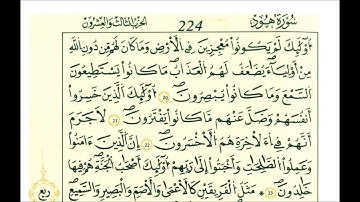 سُورَةُ هُودٍ 224 الحزب الثالث والعشرون
أُوْلَٰٓئِكَ لَمْ يَكُونُوا۟ مُعْجِزِينَ فِى ٱلْأَرْضِ وَمَا كَانَ لَهُم مِّن دُونِ ٱللَّهِ
مِنْ أَوْلِيَآءَ يُضَٰعَفُ لَهُمُ ٱلْعَذَابُ مَا كَانُوا۟ يَسْتَطِيعُونَ
ٱلسَّمْعَ وَمَا كَانُوا۟ يُبْصِرُونَ ۝20 أُوْلَٰٓئِكَ ٱلَّذِينَ خَسِرُوٓا۟
أَنفُسَهُمْ وَضَلَّ عَنْهُم مَّا كَانُوا۟ يَفْتَرُونَ ۝21 لَا جَرَمَ
أَنَّهُمْ فِى ٱلْءَاخِرَةِ هُمُ ٱلْأَخْسَرُونَ ۝22 إِنَّ ٱلَّذِينَ ءَامَنُوا۟
وَعَمِلُوا۟ ٱلصَّٰلِحَٰتِ وَأَخْبَتُوٓا۟ إِلَىٰ رَبِّهِمْ أُوْلَٰٓئِكَ أَصْحَٰبُ ٱلْجَنَّةِ هُمْ فِيهَا
خَٰلِدُونَ ۝23 مَثَلُ ٱلْفَرِيقَيْنِ كَٱلْأَعْمَىٰ وَٱلْأَصَمِّ وَٱلْبَصِيرِ وَٱلسَّمِيعِ
ربع